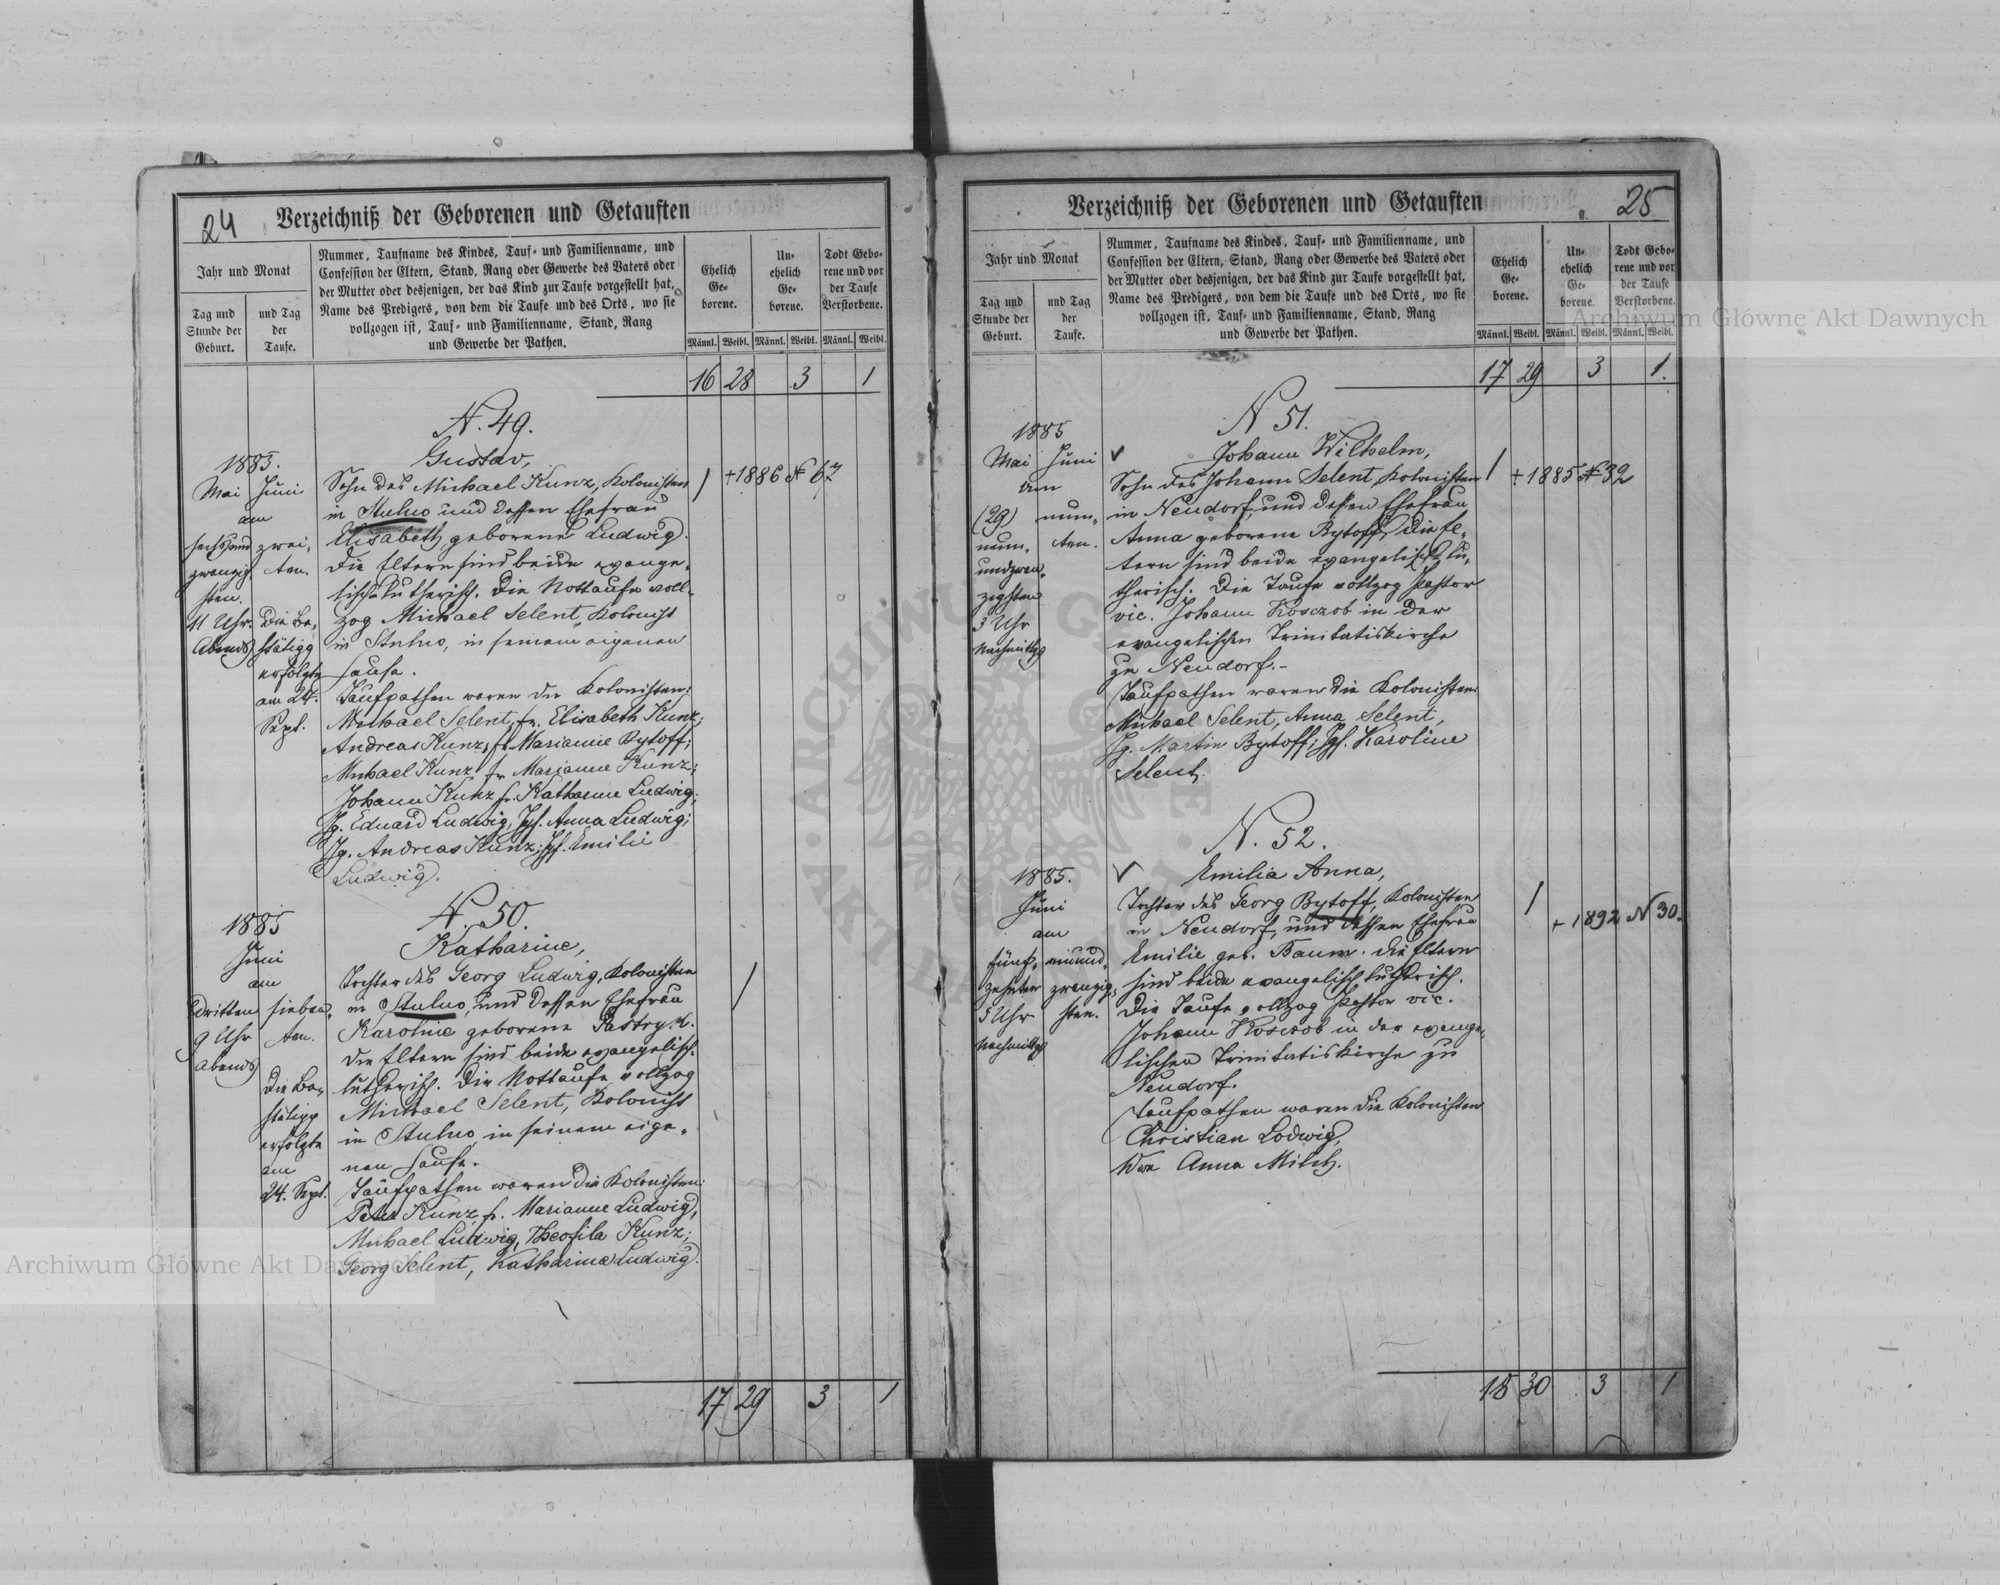 24
Verzeichniß der Geborenen und Getauften
Jahr und Monat
Tag und Stunde der Geburt.
und Tag der Taufe.
Nummer, Taufname des Kindes, Tauf- und Familienname, und
Confession der Eltern, Stand, Rang oder Gewerbe des Vaters oder
der Mutter oder desjenigen, der das Kind zur Taufe vorgestellt hat,
Name des Predigers, von dem die Taufe und des Orts, wo sie
vollzogen ist, Tauf- und Familienname, Stand, Rang
und Gewerbe der Pathen.
Ehelich Ge-borene.
Un-ehelich Ge-borene.
Todt Gebo-rene und vor der Taufe Verstorbene.
Männl. Weibl. Männl. Weibl. Männl. Weibl.
16 28 3 1
N. 49.
Gustav,
1885.
Mai Juni
am
sechsund zwei-
zwanzig ten.
sten.
11 Uhr. Die Be-
Abends stätigg
erfolgte
am 24.
Sept.
Sohn des Michael Kunz, Kolonisten
in Stulno und dessen Ehefrau
Elisabeth geborene Ludwig.
Die Eltern sind beide evange-
lisch lutherisch. Die Nottaufe voll-
zog Michael Selent, Kolonist
in Stulno, in seinem eigenen
Hause.
Taufpathen waren die Kolonisten:
Michael Selent, fr. Elisabeth Kunz;
Andreas Kunz, fr. Marianne Bytoff;
Michael Kunz fr. Marianne Kunz;
Johann Kunz fr. Katharine Ludwig;
Jg. Eduard Ludwig, Jgf. Anna Ludwig;
Jg. Andreas Kunz; Jgf. Emilie
Ludwig.
/ + 1886 N 67
N. 50.
Katharine,
1885
Juni
am
dritten sieben-
9 Uhr ten.
Abends
Die Be-
stätigg
erfolgte
am
24. Sept.
Tochter des Georg Ludwig, Kolonisten
in Stulno, und dessen Ehefrau
Karoline geborene
Die Eltern sind beide evangelisch
lutherisch. Die Nottaufe vollzog
Michael Selent, Kolonist
in Stulno in seinem eige-
nen Hause.
Taufpathen waren die Kolonisten:
Peter Kunz, fr. Marianne Ludwig,
Michael Ludwig, Theofila Kunz;
Georg Selent, Katharina Ludwig.
/
17 29 3 1
25
Verzeichniß der Geborenen und Getauften
Jahr und Monat
Tag und Stunde der Geburt.
und Tag der Taufe.
Nummer, Taufname des Kindes, Tauf- und Familienname, und
Confession der Eltern, Stand, Rang oder Gewerbe des Vaters oder
der Mutter oder desjenigen, der das Kind zur Taufe vorgestellt hat,
Name des Predigers, von dem die Taufe und des Orts, wo sie
vollzogen ist, Tauf- und Familienname, Stand, Rang
und Gewerbe der Pathen.
Ehelich Ge-borene.
Un-ehelich Ge-borene.
Todt Gebo-rene und vor der Taufe Verstorbene.
Männl. Weibl. Männl. Weibl. Männl. Weibl.
17 29 3 1.
N 51.
Johann Wilhelm,
1885
Mai Juni
am
(29) neun-
neun- ten.
undzwan-
zigsten
3 Uhr
Nachmittag
Sohn des Johann Selent, Kolonisten
in Neudorf, und dessen Ehefrau
Anna geborene Bytoff, Die El-
tern sind beide evangelisch lu-
therisch. Die Taufe vollzog Pastor
vic. Johann Kosczob in der
evangelischen Trinitatiskirche
zu Neudorf.-
Taufpathen waren die Kolonisten
Michael Selent, Anna Selent,
Jg. Martin Bytoff; Jgf. Karoline
Selent.
/ + 1885 N 39
N. 52.
Emilia Anna,
1885.
Juni
am
fünf- einund-
zehnten zwanzig-
5 Uhr sten.
Nachmittag
Tochter des Georg Bytoff, Kolonisten
in Neudorf, und dessen Ehefrau
Emilie geb. Baum. Die Eltern
sind beide evangelisch lutherisch.
Die Taufe vollzog Pastor vic.
Johann Kosczob in der evange-
lischen Trinitatiskirche zu
Neudorf.
Taufpathen waren die Kolonisten
Christian Lodwig,
Wwe Anna Milch.
/ + 1892 N 30.
18 30 3 1
Archiwum Główne Akt Dawnych
Archiwum Główne Akt Dawnych